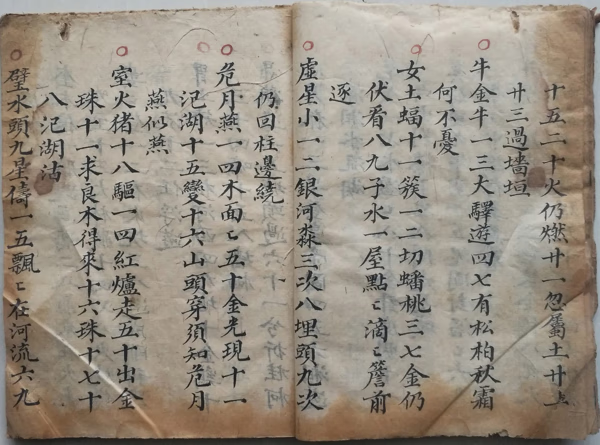 十五二十火仍燃廿一忽屬土廿上
廿三過墻垣
牛金牛一三大驛遊四七有松柏秋霜
何不憂
女土蝠十一簇一二切蟠桃三七金仍
伏看八九子水一屋點〻滴〻簷前
逐
虛星小一二銀河淼三次八埋頭九次
仍回柱邊繞
危月燕一四木面〻五十金光現十一
汜湖十五變十六山頭穿須知危月
燕似燕
室火猪十八驅一四紅爐走五十出金
珠十一求良木得來十六珠十七十
八汜湖沽
壁水頭九星倚一五飄〻在河流六九